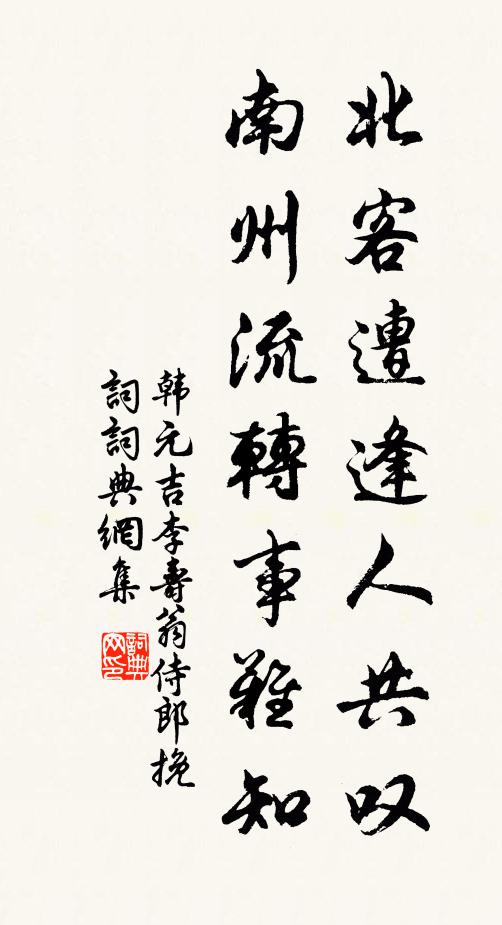 北客遭逢人共叹
南州流轉事難知
韩元吉李壽翁侍郎挽
詞詞典網集
詞典网印